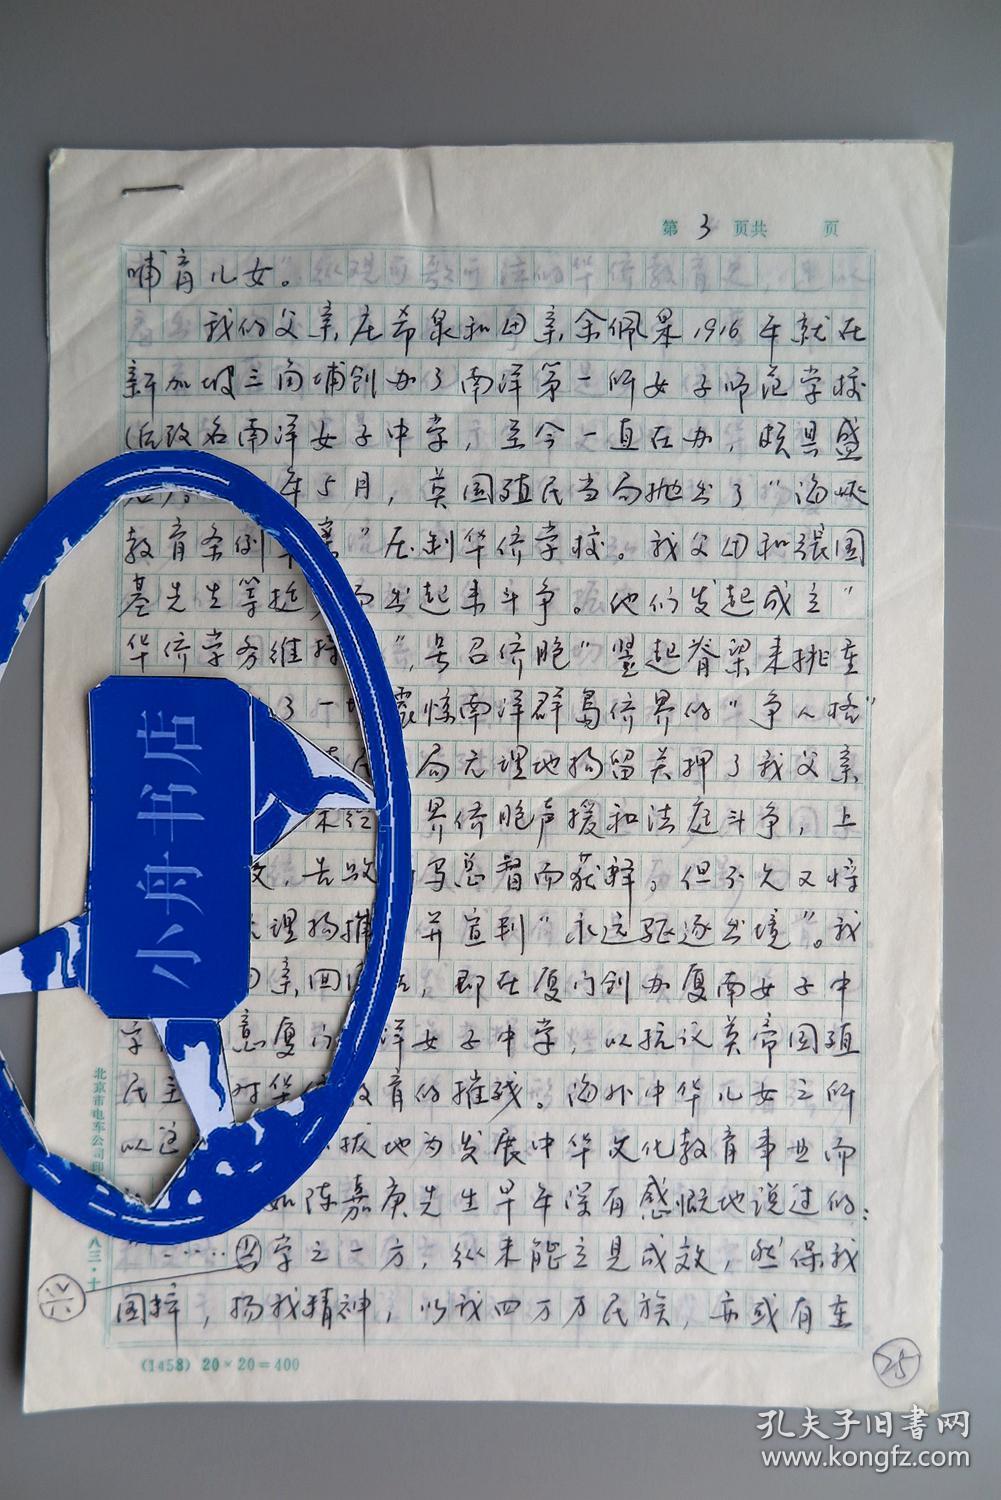 第 3 页共 页
哺育儿女。
我的父亲庄希泉和母亲余佩皋1916年就在
新加坡三角埔创办了南洋第一所女子师范学校
(后改名南洋女子中学,至今一直在办,颇具盛
年5月,英国殖民当局抛出了"海峡
教育条例草案"压制华侨学校。我父母和张国
基先生等挺 而出起来斗争。他们发起成立"
华侨学务维持 "号召侨胞"竖起脊梁来挑重
了一 震惊南洋群岛侨界的"争人格"
局无理地拘留关押了我父亲
界侨胞声援和法庭斗争,上
告败 马总督而获释。但不久又将
无理拘捕 并宣判"永远驱逐出境"。我
母亲回 即在厦门创办厦南女子中
学 意厦门 洋女子中学,以抗议英帝国殖
民主 对华侨教育的摧残。海外中华儿女之所
以这 拔地为发展中华文化教育事业而
如陈嘉庚先生早年深有感慨地说过的:
……兴学之一方,纵未能立见成效,然保我
国粹,扬我精神,以我四万万民族,亦或有重
兴
25
(1458) 20×20=400
北京市电车公司印
八三·十
小舟书店
孔夫子旧书网
www.kongfz.com